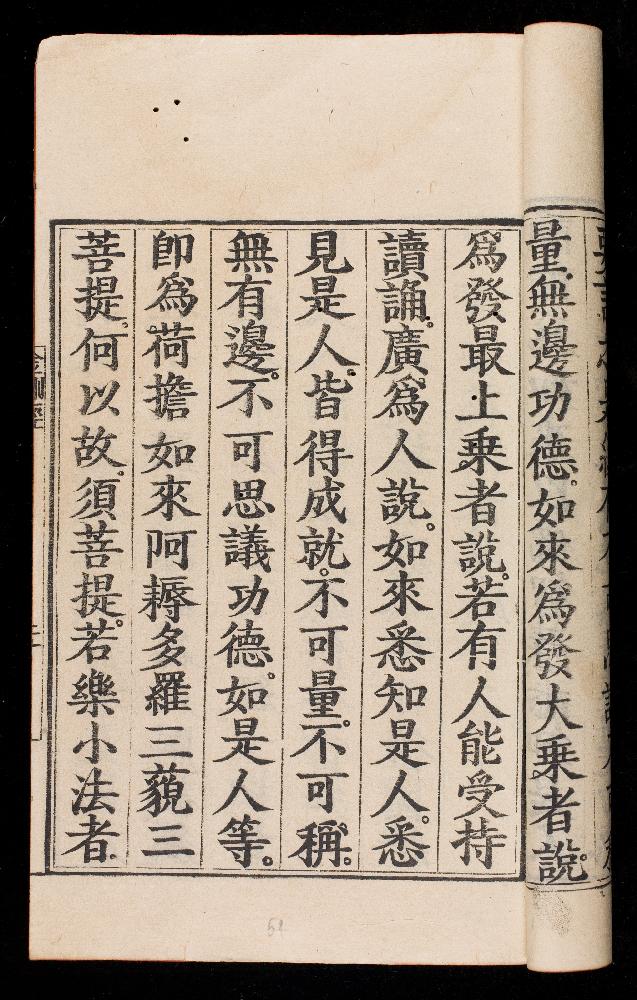 量。無邊功德。如來爲發大乘者說。
爲發最上乘者說。若有人能受持
讀誦。廣爲人說。如來悉知是人。悉
見是人。皆得成就。不可量。不可稱。
無有邊。不可思議功德。如是人等。
卽爲荷擔如來阿耨多羅三藐三
菩提。何以故。須菩提。若樂小法者。
金剛經
51